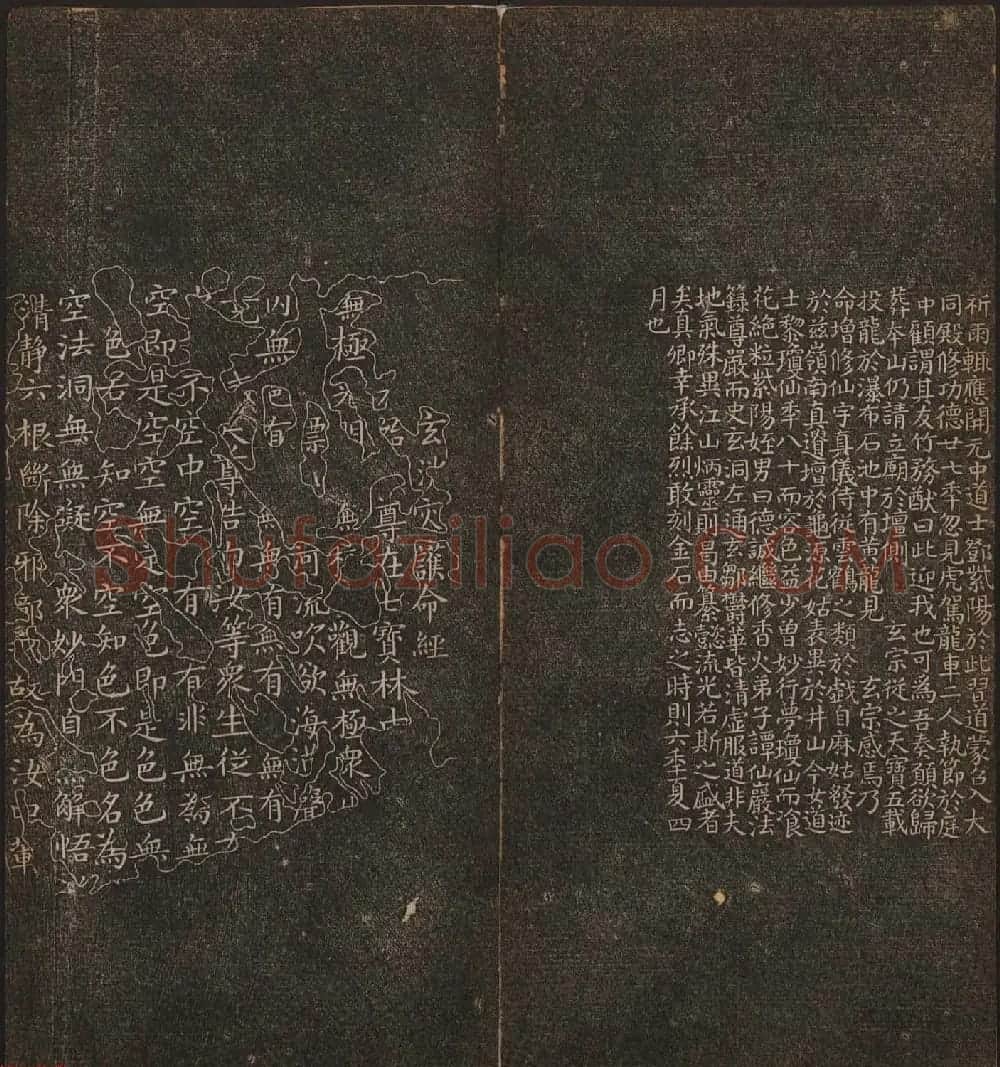 祈雨輒應開元中道士鄧紫陽於此習道蒙召入大
同殿修功德廿七年忽見虎駕龍車二人執節於庭
中顧謂其友竹務猷曰此迎我也可為吾奏願欲歸
葬本山仍請立廟於壇側 玄宗從之天寶五載
投龍於瀑布石池中有黃龍見 玄宗感焉乃
命增修仙宇真儀侍從雲鶴之類於戲自麻姑發迹
於茲嶺南真遺壇於龜源花姑表異於井山今女道
士黎瓊仙年八十而容色益少曾妙行夢瓊仙而飡
花絕粒紫陽姪男曰德誠繼修香火弟子譚仙巖法
籙尊嚴而史玄洞左通玄鄒鬱華皆清虛服道非夫
地氣殊異江山炳靈則曷由纂懿流光若斯之盛者
矣真卿幸承餘烈敢刻金石而志之時則六年夏四
月也
護命經
尊在七寶林
無極 無 觀無極眾
流吹欲海
內無 有 無有無有 無有
尊告 女等眾生從不
示空中空 有 有非無為無
空即是空空無定空色即是色色無
色若知空不空知色不色名為
空法洞無無礙 眾妙門自 解悟
清靜六根斷除邪 故為汝 輩
Shufaziliao.COM